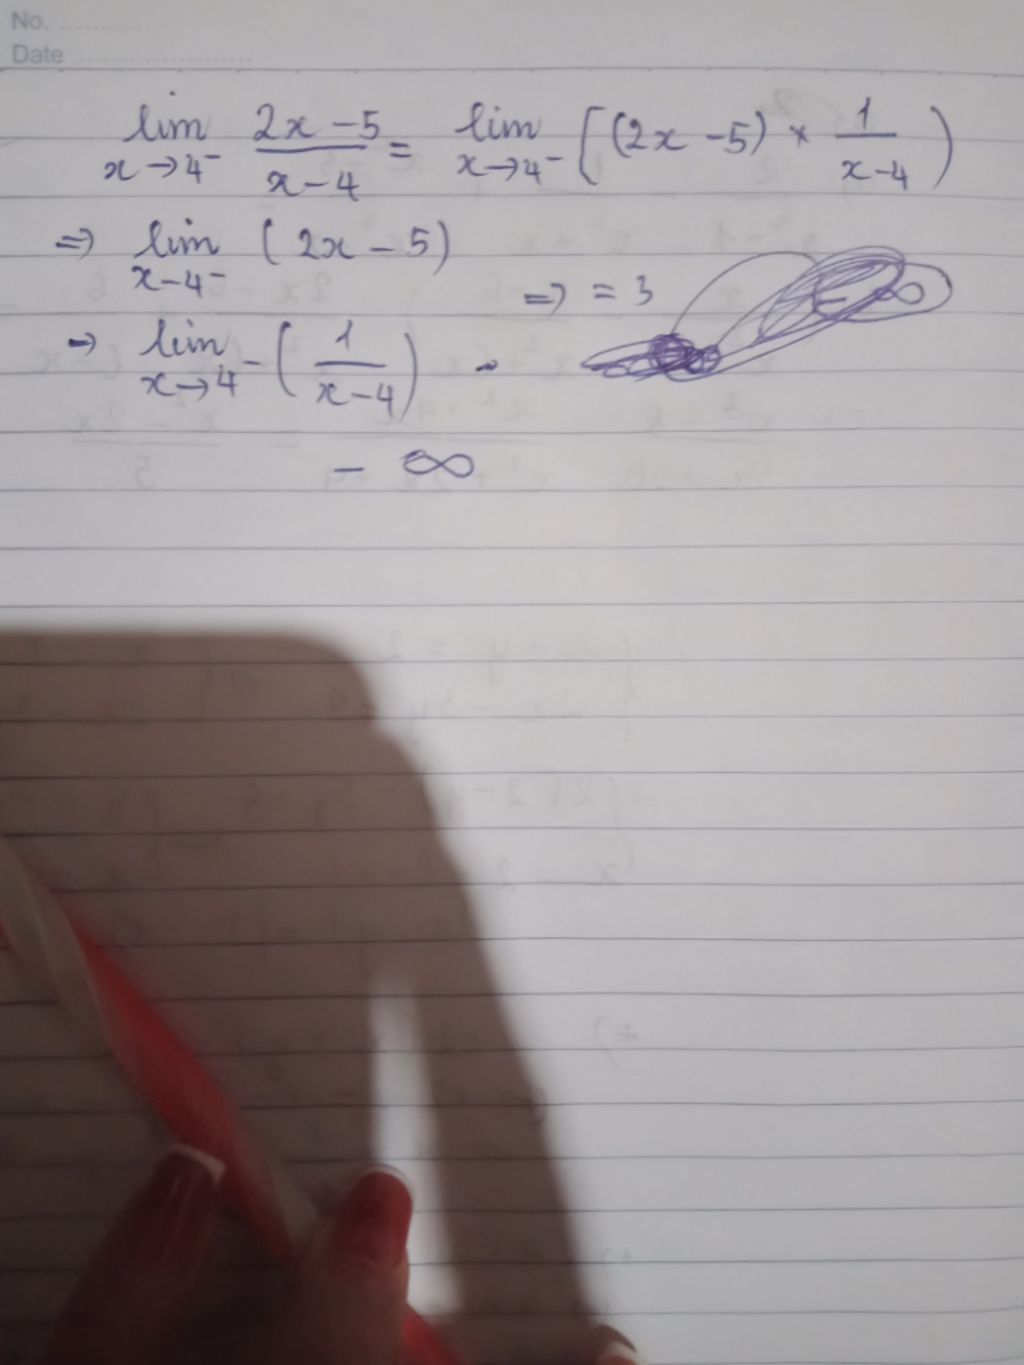 No.
Date
lim x→4⁻ (2x-5)/(x-4) = lim x→4⁻ [(2x-5) × 1/(x-4))
=> lim x-4⁻ (2x-5)
=> = 3
→ lim x→4⁻ (1/(x-4))
- ∞